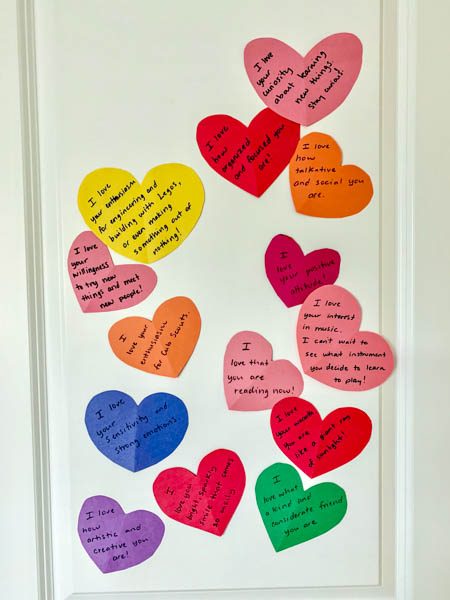 I love
your
curiosity
about learning
new things.
Stay curious!
I love
how
organized
and focused you
are!
I love
how
talkative
and social you
are.
I love
your enthusiasm
for engineering and
building with Legos,
or even making
something out of
nothing!
I love
your
willingness
to try new
things and meet
new people!
I
love
your positive
attitude!
I love
your interest
in music.
I can't wait to
see what instrument
you decide to learn
to play!
I love your
enthusiasm
for Cub Scouts.
I
love that
you are
reading now!
I love
your
sensitivity and
strong emotions.
I
love your warmth
you are
like a giant ray
of sunlight!
I
love your
bright, sparkly
smile that comes
so easily
I
love what
a kind and
considerate friend
you are
I love
how
artistic and
creative you
are!